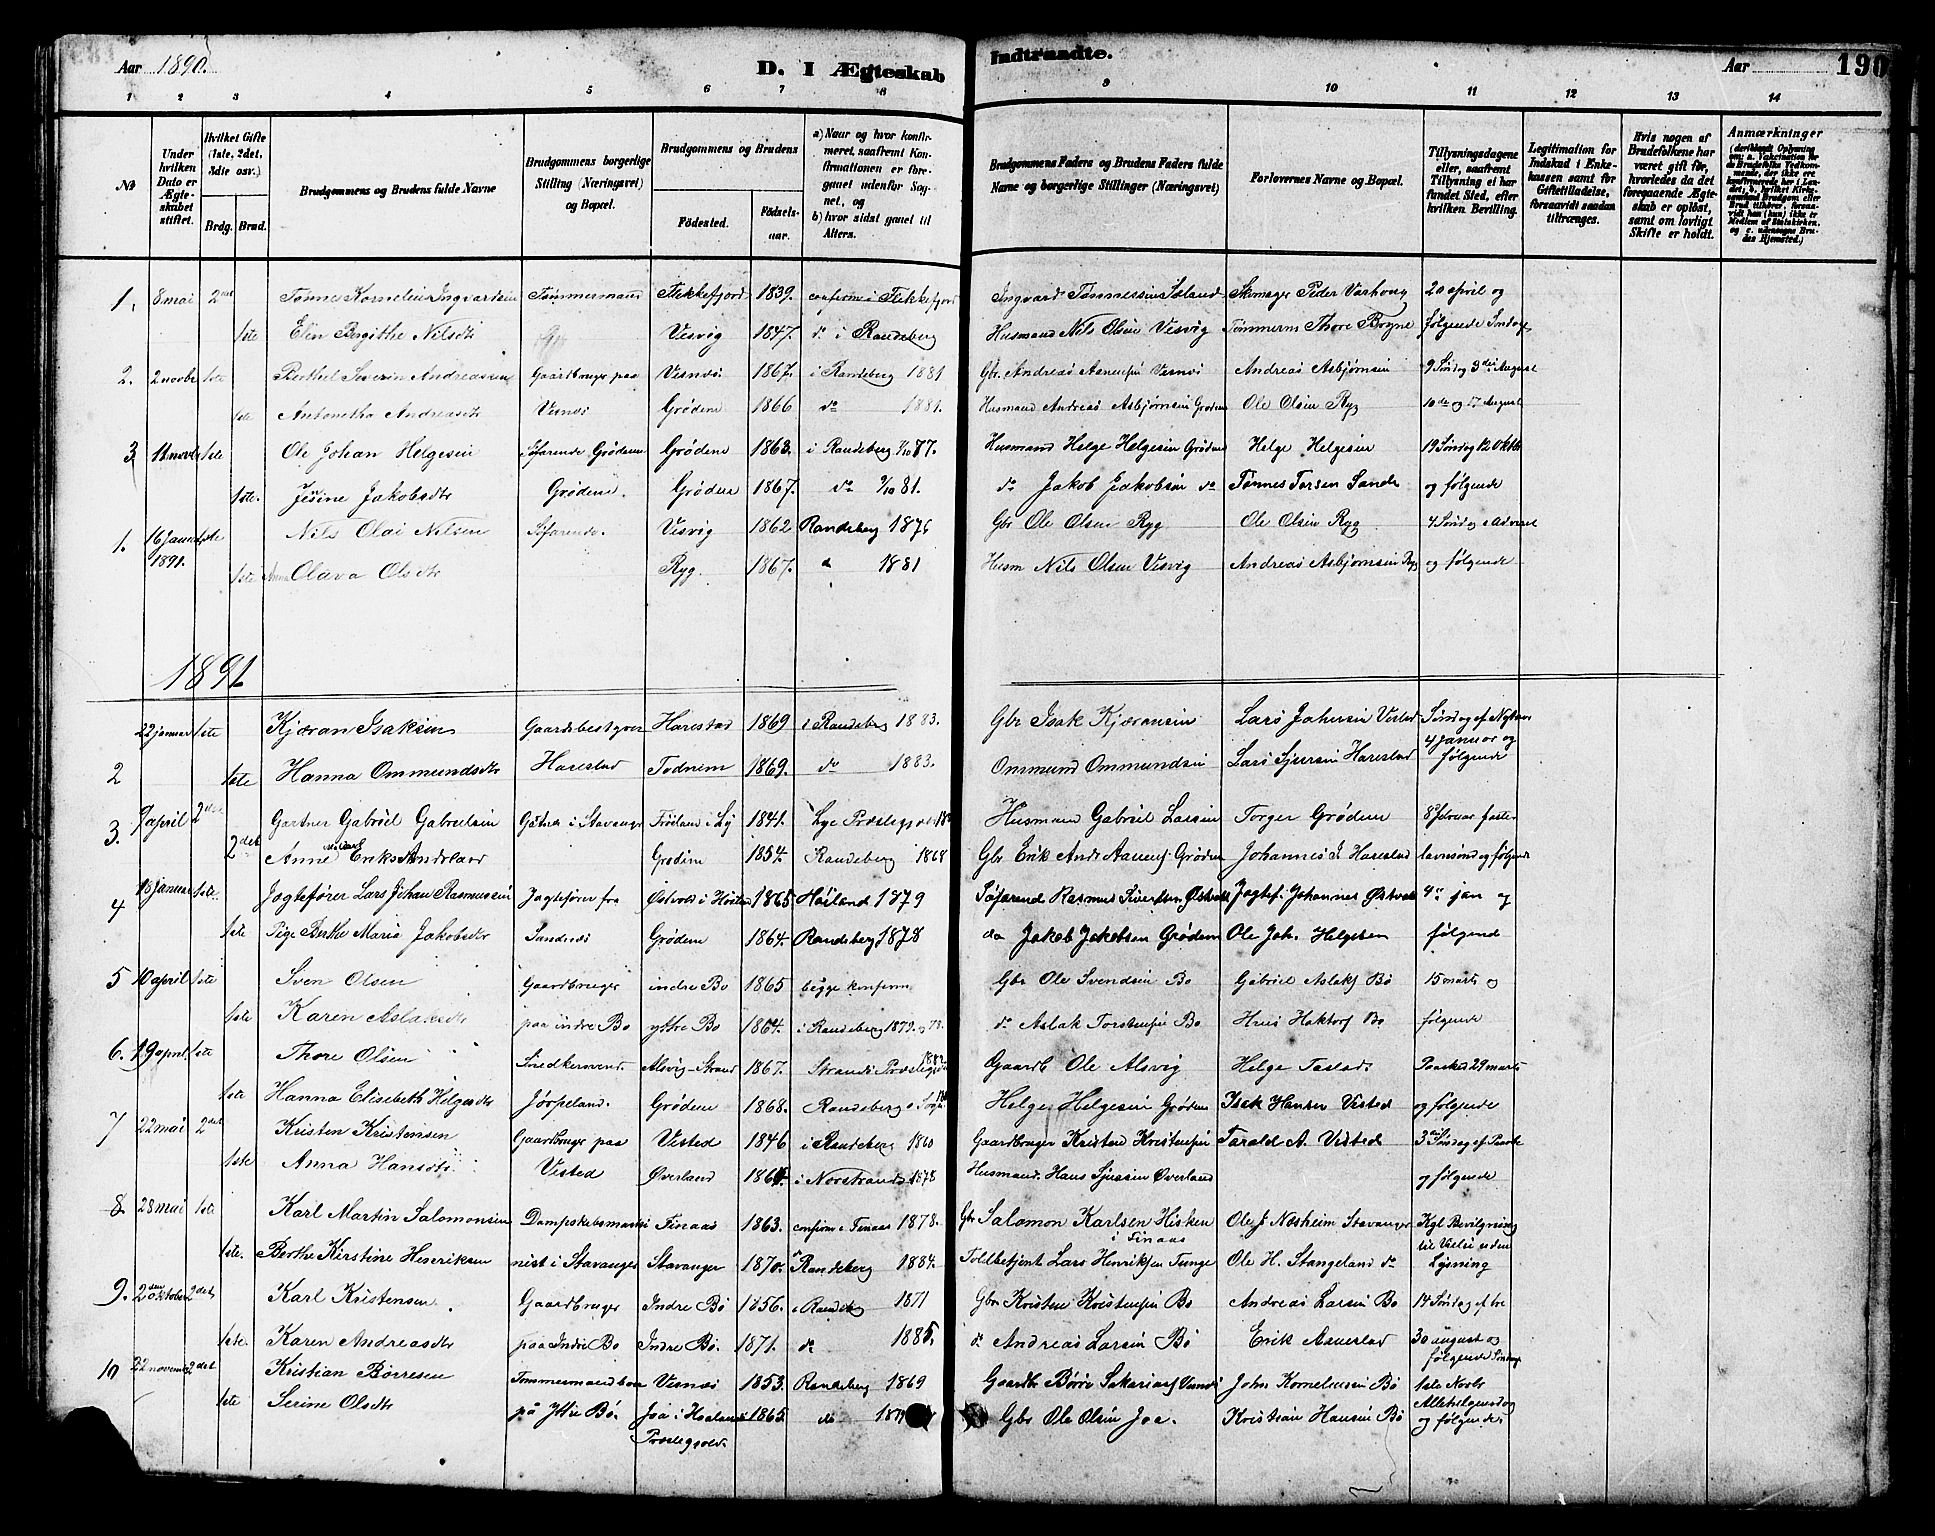 Aar 1890. D. I Ægteskab Indtraadte. Aar 190
1 2 3 4 5 6 7 8 9 10 11 12 13 14
№ Under hvilken Dato er Ægteskabet stiftet. Hvilket Gifte (1ste, 2det, 3die osv.) Brdg. Brud. Brudgommens og Brudens fulde Navne Brudgommens borgerlige Stilling (Næringsvei) og Bopæl. Brudgommens og Brudens Fødested. Fødselsaar. a) Naar og hvor konfirmeret, saafremt Konfirmationen er foregaaet udenfor Sognet, og b) hvor sidst gaaet til Alters. Brudgommens Faders og Brudens Faders fulde Navne og borgerlige Stillinger (Næringsvei) Forlovernes Navne og Bopæl. Tillysningsdagene eller, saafremt Tillysning ei har fundet Sted, efter hvilken Bevilling. Legitimation for Indskud i Enkekassen samt for Giftetilladelse, forsaavidt saadan tiltrænges. Hvis nogen af Brudefolkene har været gift før, hvorledes da det foregaaende Ægteskab er opløst, samt om lovligt Skifte er holdt. Anmærkninger
1. 8 mai 2det Tønnes Kornelius Ingvardsen Tømmermand Flekkefjord 1839. confirm i Flekkefjord Ingvard Tønnessen Søland Skomager Peder Varhoug 20 april og
1ste Elen Bergithe Nilsdtr Vesvig 1847. do i Randeberg Husmand Nils Olsen Vesvig Tømmerm Thore Bryne følgende Søndage
2. 2 novbr 1ste Berthel Severin Andreassen Gaardbruger paa Vesnæs 1867. i Randeberg 1881 Gbr. Andreas Vesnæs Andreas Asbjørnsen 9 Søndag 3die August
1ste Antonetha Andreasdtr Vesnæs Grødem 1866 do 1881. Husmand Andreas Asbjørnsen Grødem Ole Olsen Ryg 10de og 17 August
3 11 novbr 1ste Ole Johan Helgesen Søfarende Grødem Grødem 1863. i Randeberg 1/10 87. Husmand Helge Helgesen Grødem Helge Helgesen 19 Søndag 12 Oktbr
1ste. Jesine Jakobsdtr Grødem. Grødem 1867. do 9/10 81. do Jakob Jakobsen do Tønnes Torsen Sande og følgende
1. 16 januar 1891. 1ste Nils Olai Nilsen Søfarende. Vesvig 1862 Randeberg 1876 Gbr Ole Olsen Ryg Ole Olsen Ryg 4 Søndag i Advent
1ste Anna Olava Olsdtr Ryg. 1867. " 1881 Husm Nils Olsen Vesvig Andreas Asbjørnsen Ryg og følgende
1891
22 januar 1ste Kjæran Isaksen Gaardsbestyrer Harestad 1869 i Randeberg 1883. Gbr Isak Kjæransen Lars Søndag ef Nytaar
2 1ste Hanna Ommundsdtr Harestad Todnem 1869. do 1883. Ommund Ommundsen Lars Sjursen Harestad 4 Januar og følgende
3. 9 april 2det Gartner Gabriel Gabrielsen Gartner i Stavanger Frøiland i Ly 1841. Lye Husmand Gabriel Larsen Torger Grødem 8 Februar faste-
2det Anne Eriksdtr Grødem 1854. Randeberg 1868 Gbr. Erik Grødem Johannes J. Harestad lavnsønd og følgende
4 18 januar 1ste. Jagtefører Lars Johan Rasmussen Jagtefører fra Østvold i Høiland 1865 Høiland 1879 Søfarend Rasmus Sivertsen Østvold Jagtef. Johannes Østvold 4de jan og
1ste Pige Berthe Maria Jakobsdtr Sandnæs Grødem 1864. Randeberg 1878 do Jakob Jakobsen Grødem Ole Joh. Helgesen følgende
5 10 april 1ste Sven Olsen Gaardbruger indre Bo 1865 begge konfirm Gbr Ole Svendsen Bo Gabriel Aslaks Bø 15 marts og
1ste Karen Aslaksdtr paa indre Bo yttre Bo 1864. i Randeberg 1879. og 78. do Aslak Torstensen Bo Bo følgende
6. 19 april 1ste Thore Olsen Snedkersvend. Alsvig-Strand 1867. Strands Gaardb Ole Alsvig Helge Tastad. Paasked 29 marts
1ste Hanna Elisabeth Helgesdtr Jørpeland. Grødem 1868. Randeberg Helge Helgesen Grødem Isak Hansen Visted og følgende
7 22 mai 2det Kristen Kristensen Gaardbruger paa Visted 1846 i Randeberg 1860 Gaardbruger Kristen Kristensen Tarald A. Visted 3die Søndag ef Paaske
1ste Anna Hansdtr. Visted Øverland 1864. i Norstrand 1878 Husmand. Hans Sjursen Øverland og følgende
8. 28 mai 1ste Karl Martin Salomonsen Dampskibsmaski- Finaas 1863. confirm i Finaas 1878. Gbr Salomon Karlsen Hisken i Finaas Ole J Næsheim Stavanger Kgl Bevilgning
1ste. Berthe Kirstine Henriksen nist i Stavanger Stavanger 1870. Randeberg 1884. Toldbetjent Lars Henriksen Tunge Ole H. Stangeland do til Vielse uden Lysning
9. 2den Oktober 2det Karl Kristensen Gaardbruger Indre Bø 1856. i Randeb 1871 Gbr Kristen Kristensen Bo Andreas Larsen Bo 14 Søndag ef tre
1ste. Karen Andreasdtr paa Indre Bo Indre Bø. 1871. do 1885. do Andreas Larsen Bø Erik 30 august og følgende Søndage
10 22 november 2det Kristian Børresen Tømmermand Vesnæs 1853. Randeberg 1869 Gaardbr Børre Vesnæs John Kornelius Bø 1ste Novbr
1ste Serine Olsdtr på Yttre Bø. Joa i Haalands Præstegjeld. 1865. do Gbr Ole Olsen Joa. Kristian Hansen Bø Allehelgensdag og følgende